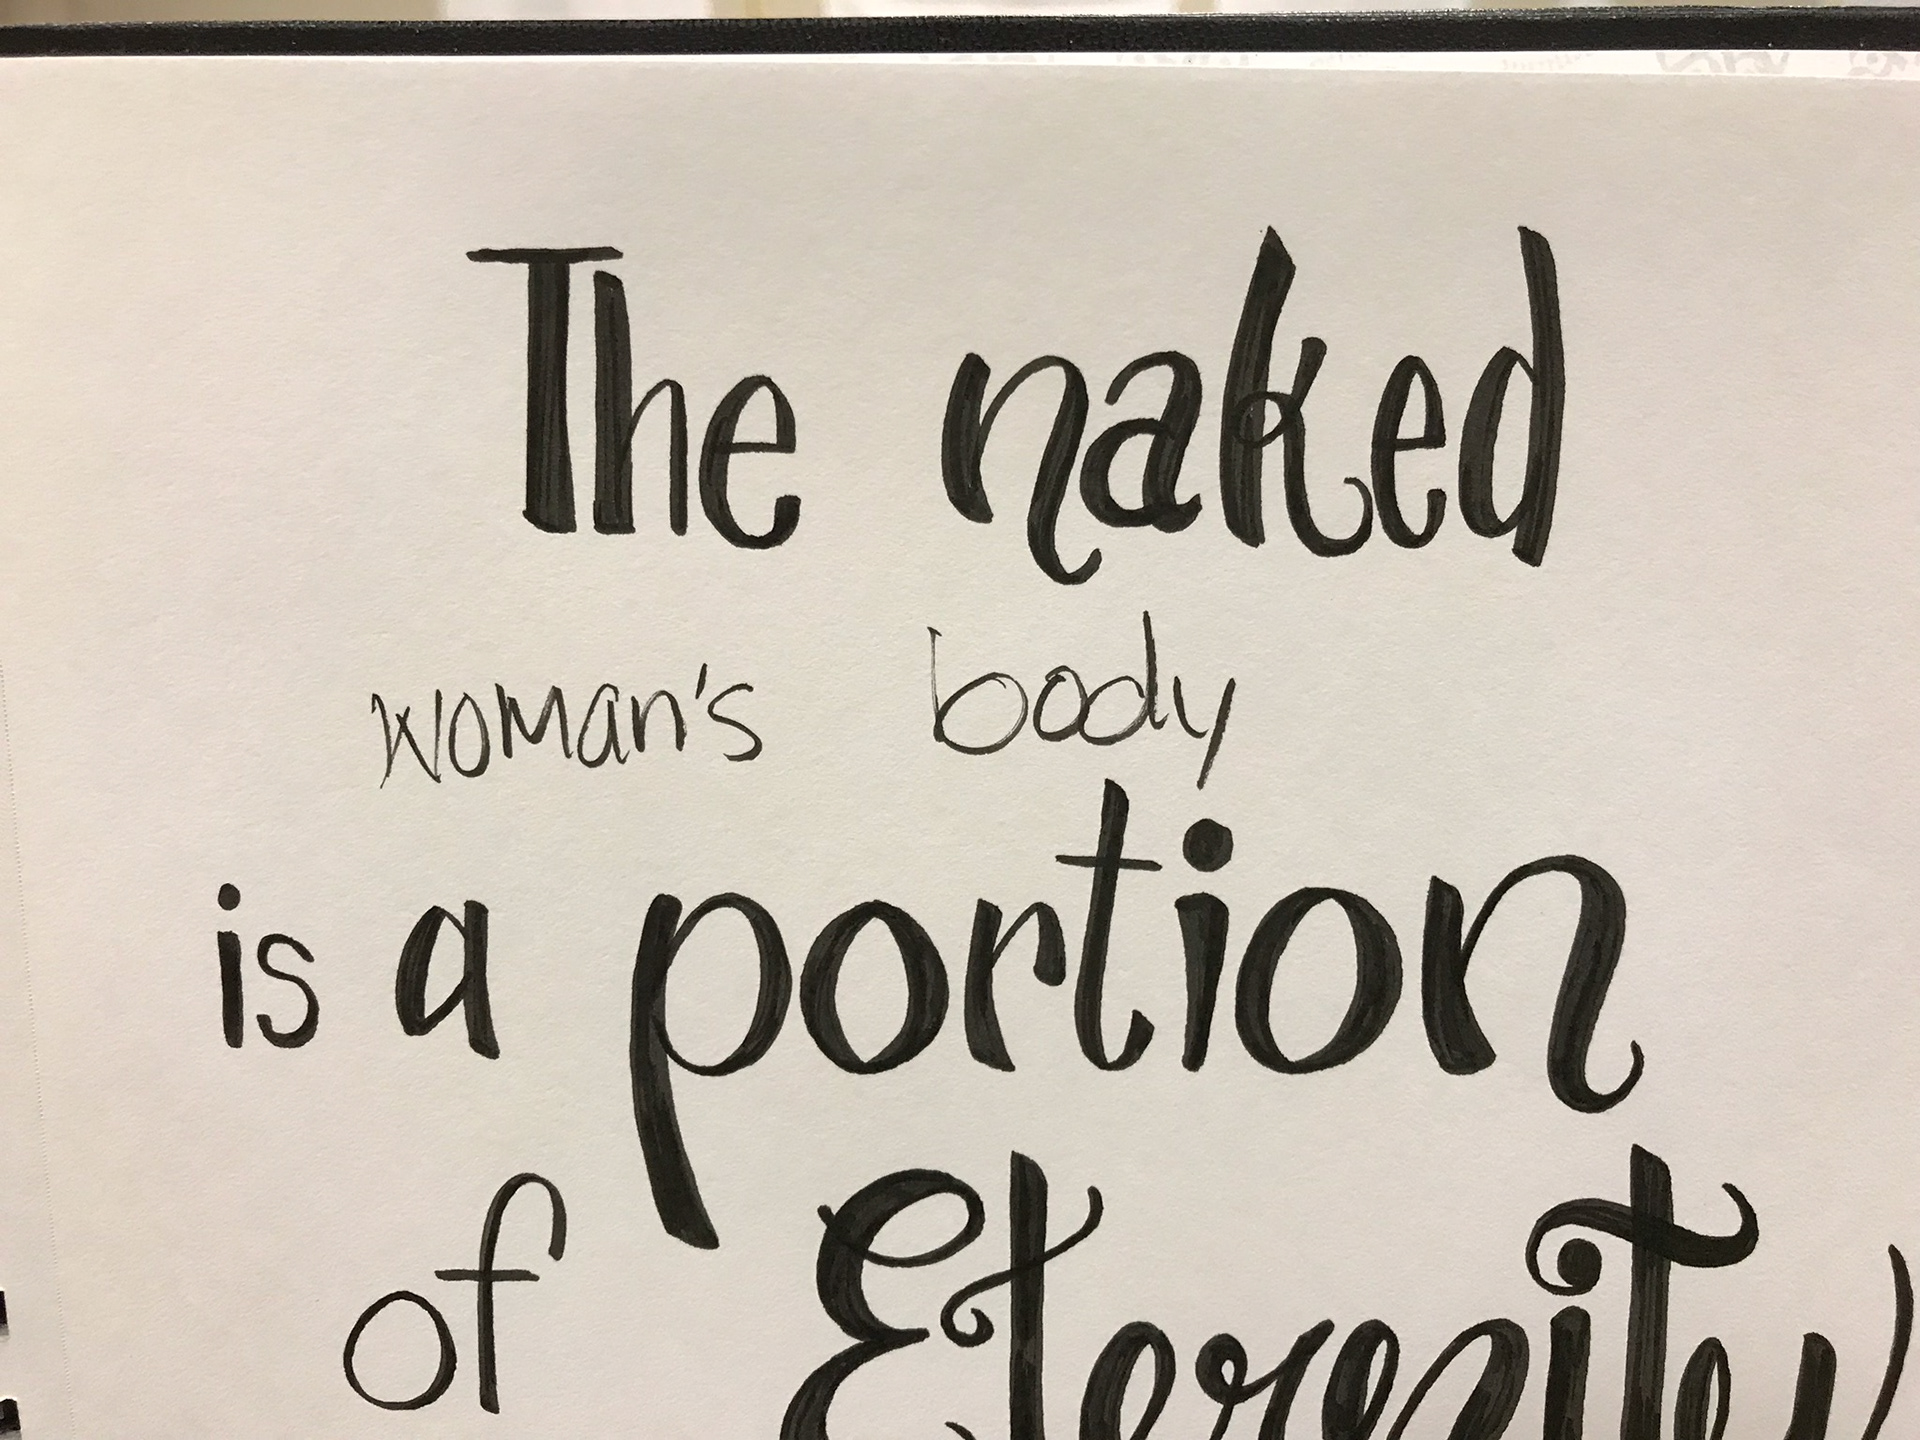 The naked
woman's body
is a portion
of Eternity